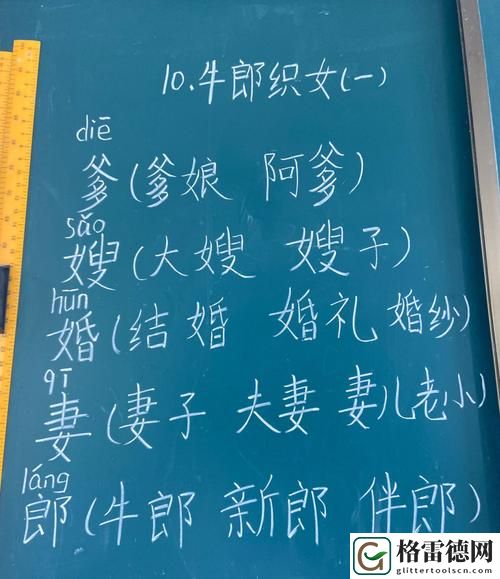 10.牛郎织女(一)
diē
爹(爹娘 阿爹)
sǎo
嫂(大嫂 嫂子)
hūn
婚(结婚 婚礼 婚纱)
qī
妻(妻子 夫妻 妻儿老小)
láng
郎(牛郎 新郎 伴郎)
格雷德网
glittertoolscn.com